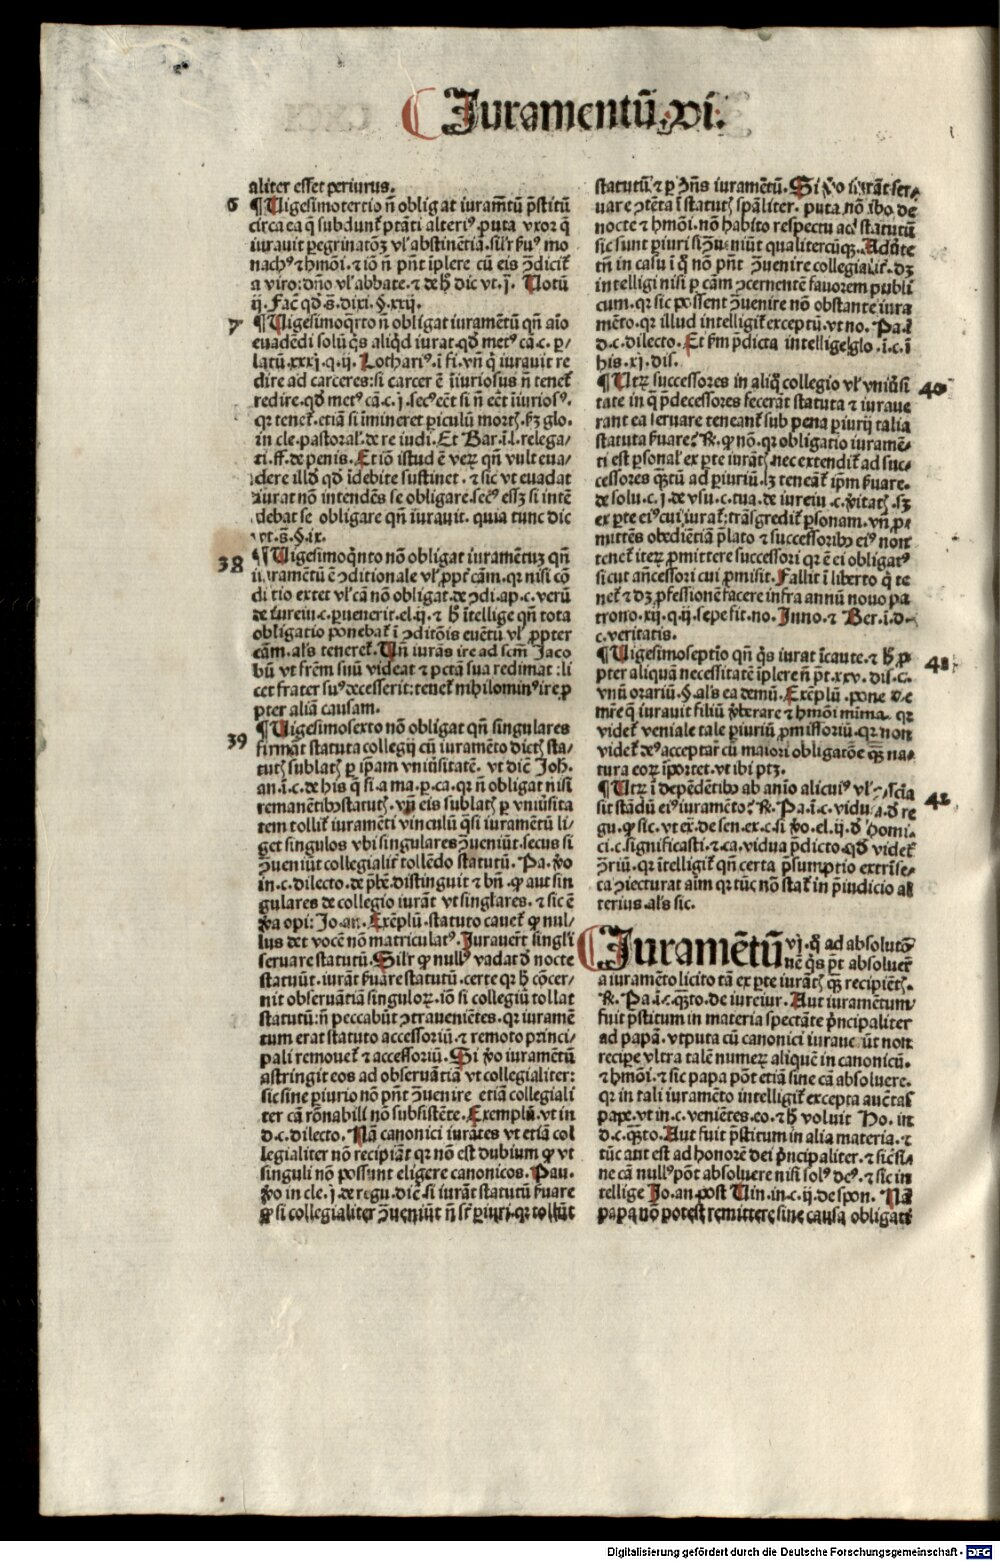 Iuramentū.vi.
aliter esset periurus.
6
¶Uigesimotertio ñ obligat iuramẽtū p̃stitū
circa ea q̃ subdunt̃ ptãti alteriꝰ. puta vxor q̃
iurauit peregrinatõꝫ vl' abstinẽtiã. sil'r s̃uꝰ mo
nachꝰ ⁊ hmõi. ⁊ iõ ñ pñt ĩplere cū eis ↄ̃dicit̃
a viro: dño vl' abbate. ⁊ de h̃ dic vt. j̃. Uotū
ij. Fac̃ qd̃ s̃. dixi. §. xxij.
7
¶Uigesimoq̃rto ñ obligat iuramẽtū qñ aĩo
euadẽdi solū q̃s aliq̃d iurat. qd̃ metꝰ cã. c. p/
latū. xxxj. q. ij. Lothariꝰ. ĩ fi. vñ q̃ iurauit re
dire ad carceres: si carcer ẽ ĩiuriosus ñ tenet̃
redire. qd̃ metꝰ cã. c. j. secꝰ eẽt si ñ eẽt ĩiuriosꝰ.
qr tenet̃. etiã si ĩmineret piculū mortꝭ. s̃ꝫ glo.
in cle. pastoral'. de re iudi. Et Bar. ĩ. l. relega/
ti. ff. de penis. Et iõ istud ẽ veꝝ qñ vult eua/
dere illd̃ qd̃ ĩdebite sustinet. ⁊ sic vt euadat
iurat nõ intendẽs se obligare. secꝰ essꝫ si intẽ
debat se obligare qñ iurauit. quia tunc dic
vt. s̃. §. ix.
38
¶Uigesimoq̃nto nõ obligat iuramẽtuꝫ qñ
iuramẽtū ẽ ↄditionale vl' ꝓpt̃ cãm. qr nisi cõ
ditio extet vl' cã nõ obligat. de ↄdi. ap. c. verū
de iureiu. c. puenerit. el. ij. ⁊ h̃ ĩtellige qñ tota
obligatio ponebat̃ ĩ ↄditõis euẽtū vl' ꝓpter
cãm. al's teneret̃. Uñ iurãs ire ad scm̃ Jaco
bū vt frẽm suū videat ⁊ pctã sua redimat: li
cet frater suꝰ decesserit: tenet̃ nihilominꝰ ire ꝓ
pter aliã causam.
39
¶Uigesimosexto nõ obligat qñ singulares
firmãt statuta collegij cū iuramẽto dictꝭ sta/
tutꝭ sublatꝭ p ipsam vniũsitatẽ. vt dic̃ Joh.
an. ĩ. c. de his q̃ si. a ma. p. ca. qr ñ obligat nisi
remanẽtibꝰ statutꝭ. vñ eis sublatꝭ p vniũsita
tem tollit̃ iuramẽti vinculū q̃si iuramẽtū li/
get singulos vbi singulares ↄueniũt. secus si
ↄueniũt collegialit̃ tollẽdo statutū. Pa. ṽo
in. c. dilecto. de p̃be. distinguit ⁊ bñ. ꝙ aut sin
gulares de collegio iurãt vt sing'lares. ⁊ sic ẽ
ṽa opi: Jo. an. Exẽplū. statuto cauet̃ ꝙ nul/
lus det vocẽ nõ matriculatꝰ. Jurauer̃t singl'i
seruare statutū. Sil'r ꝙ nullꝰ vadat d̃ nocte
statuũt. iurãt s̃uare statutū. certe qr h̃ cõcer/
nit obseruãtiã singuloꝝ. iõ si collegiū tollat
statutū: ñ peccabũt ↄtrauenĩẽtes. qr iuramẽ
tum erat statuto accessoriū. ⁊ remoto princi/
pali remouet̃ ⁊ accessoriū. Si ṽo iuramẽtū
astringit eos ad obseruãtiã vt collegialiter:
sic sine piurio nõ pñt ↄuenire etiã collegiali
ter cã rõnabili nõ subsistẽte. Exemplū. vt in
d. c. dilecto. Nã canonici iurãtes vt etiã col
legialiter nõ recipiãt qr nõ est dubium ꝙ vt
singuli nõ possunt eligere canonicos. Pau.
ṽo in cle. j. de regu. dic̃ si iurãt statutū s̃uare
ꝙ si collegialiter ↄueniũt ñ sr̃ piuri. qr tollũt
statutū ⁊ p ↄñs iuramẽtū. Si ṽo iurãt ser/
uare ↄtẽta ĩ statutꝭ sp̃aliter. puta nõ ibo de
nocte ⁊ hmõi. nõ habito respectu ad statutū
sic sunt piuri si ↄueniũt qualitercũqꝫ. Aduẽte
tñ in casu ĩ q̃ nõ pñt ↄuenire collegialit̃. dꝫ
intelligi nisi p cãm ↄcernentẽ fauorem publi
cum. qr sic possent ↄuenire nõ obstante iura
mẽto. qr illud intelligit̃ exceptū. vt no. Pa. ĩ
d. c. dilecto. Et s̃m p̃dicta intellige glo. ĩ. c. ĩ
his. xj. dis.
40
¶Utꝝ successores in aliq̃ collegio vl' vniũsi
tate in q̃ p̃decessores fecerãt statuta ⁊ iuraue
rant ea seruare teneant̃ sub pena piurij talia
statuta s̃uare? R̃. ꝙ nõ. qr obligatio iuramẽ/
ti est ꝑsonal' ex pte iurãtꝭ. nec extendit̃ ad suc/
cessores q̃ꝫtū ad piuriū. lꝫ teneãt̃ ip̃m s̃uare.
de solu. c. j. de vsu. c. tua. de iureiu. c. ṽitatꝭ. sꝫ
ex pte eiꝰ cui iurat̃: trãsgredit̃ ꝑsonam. vñ ꝓ/
mittẽs obediẽtiã p̃lato ⁊ successoribꝰ eiꝰ non
tenet̃ iteꝝ ꝓmittere successori qr ẽ ei obligatꝰ
sicut añcessori cui ꝓmisit. Fallit ĩ liberto q̃ te
net̃ ⁊ dꝫ ꝓfessionẽ facere infra annū nouo pa
trono. xij. q. ij. sepe fit. no. Inno. ⁊ Ber. ĩ. d.
c. veritatis.
41
¶Uigesimoseptĩo qñ q̃s iurat ĩcaute. ⁊ h̃ ꝓ
pter aliquã necessitatẽ ĩplere ñ pt̃. xxv. dis. c.
vnū orariū. §. al's ea demū. Exẽplū. pone de
mr̃e q̃ iurauit filiū ṽberare ⁊ hmõi mĩma. qr
videt̃ veniale tale piuriū ꝓmissoriū. qr non
videt̃ deꝰ acceptar̃ cū maiori obligatõe q̃ꝫ na/
tura eoꝝ ĩportet. vt ibi ptꝫ.
42
¶Utꝝ ĩ depẽdẽtibꝰ ab anĩo alicuiꝰ vl' scĩa
sit stãdū eiꝰ iuramẽto? R̃. Pa. ĩ. c. vidua. d̃ re
gu. ꝙ sic. vt ex̃. de sen. ex. c. si ṽo. el. ij. d̃ homi/
ci. c. significasti. ⁊. ca. vidua p̃dicto. qd̃ videt̃
ↄ̃riū. qr ĩtelligit̃ qñ certa p̃sumptio extrĩse/
ca ↄiecturat aĩm qr tũc nõ stat̃ in p̃iudicio al
terius. al's sic.
Iuramẽtū vj. q̃ ad absolutõ
nẽ q̃s pt̃ absoluer̃
a iuramẽto licito tã ex pte iurãtꝭ q̃ꝫ recipiẽtꝭ.
R̃. Pa. ĩ. c. q̃ꝫto. de iureiur. Aut iuramẽtum
fuit p̃stitum in materia spectãte p̃ncipaliter
ad papã. vt puta cū canonici iurauerũt non
recipe vltra talẽ numeꝝ aliquẽ in canonicū.
⁊ hmõi. ⁊ sic papa põt etiã sine cã absoluere.
qr in tali iuramẽto intelligit̃ excepta auctas̃
pape. vt in. c. veniẽtes. eo. ⁊ h̃ voluit Ho. in
d. c. q̃ꝫto. Aut fuit p̃stitum in alia materia. ⁊
tũc aut est ad honorẽ dei p̃ncipaliter. ⁊ sic si/
ne cã nullꝰ põt absoluere nisi solꝰ deꝰ. ⁊ sic in
tellige Jo. an. post Uin. in. c. ij. de spon. Nã
papa nõ potest remittere sine causa obligati
Digitalisierung gefördert durch die Deutsche Forschungsgemeinschaft - DFG